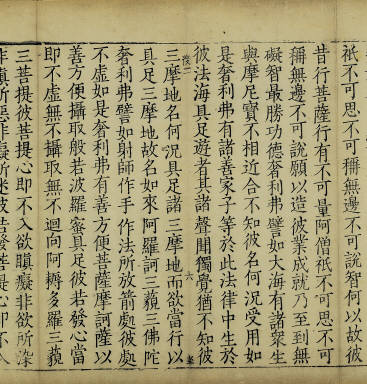 祇不可思不可稱無邊不可說智何以故彼
昔行菩薩行有不可量阿僧祇不可思不可
稱無邊不可說願以造彼業成就乃至到無
礙智最勝功德奢利弗譬如大海有諸眾生
與摩尼寶不相近合不知彼名何況受用如
是奢利弗有諸善家子等於此法律中生於
彼法海具足遊者其諸聲聞獨覺猶不知彼
三摩地名何況具足諸三摩地而欲當行以
具足三摩地故名如來阿羅訶三藐三佛陀
奢利弗譬如射師作手作法所放箭處彼處
不虛如是奢利弗有善方便菩薩摩訶薩以
善方便攝取般若波羅蜜具足彼若發心當
即不虛無不攝取無不迴向阿耨多羅三藐
三菩提彼菩提心即不入欲瞋癡非欲所染
非瞋所惡非癡所迷彼若發菩提心即不入
六